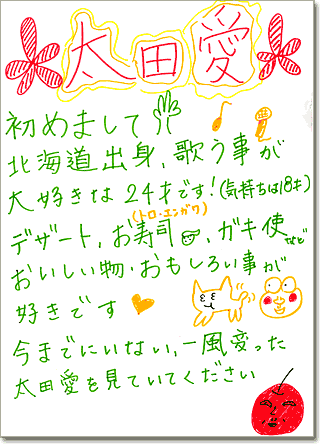 太田愛
初めまして
北海道出身、歌う事が
大好きな24才です!(気持ちは18才)
(トロ・エンガワ)
デザート、お寿司、ガキ使など
おいしい物・おもしろい事が
好きです
今までにいない、一風変った
太田愛を見ていてください